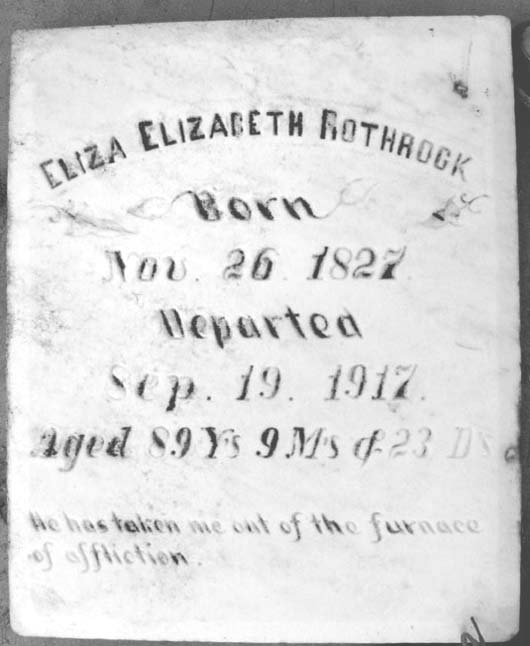 ELIZA ELIZABETH ROTHROCK
Born
Nov. 26. 1827.
Departed
Sep. 19. 1917.
Aged 89 Ys 9 Ms & 23 Ds
He has taken me out of the furnace
of affliction.